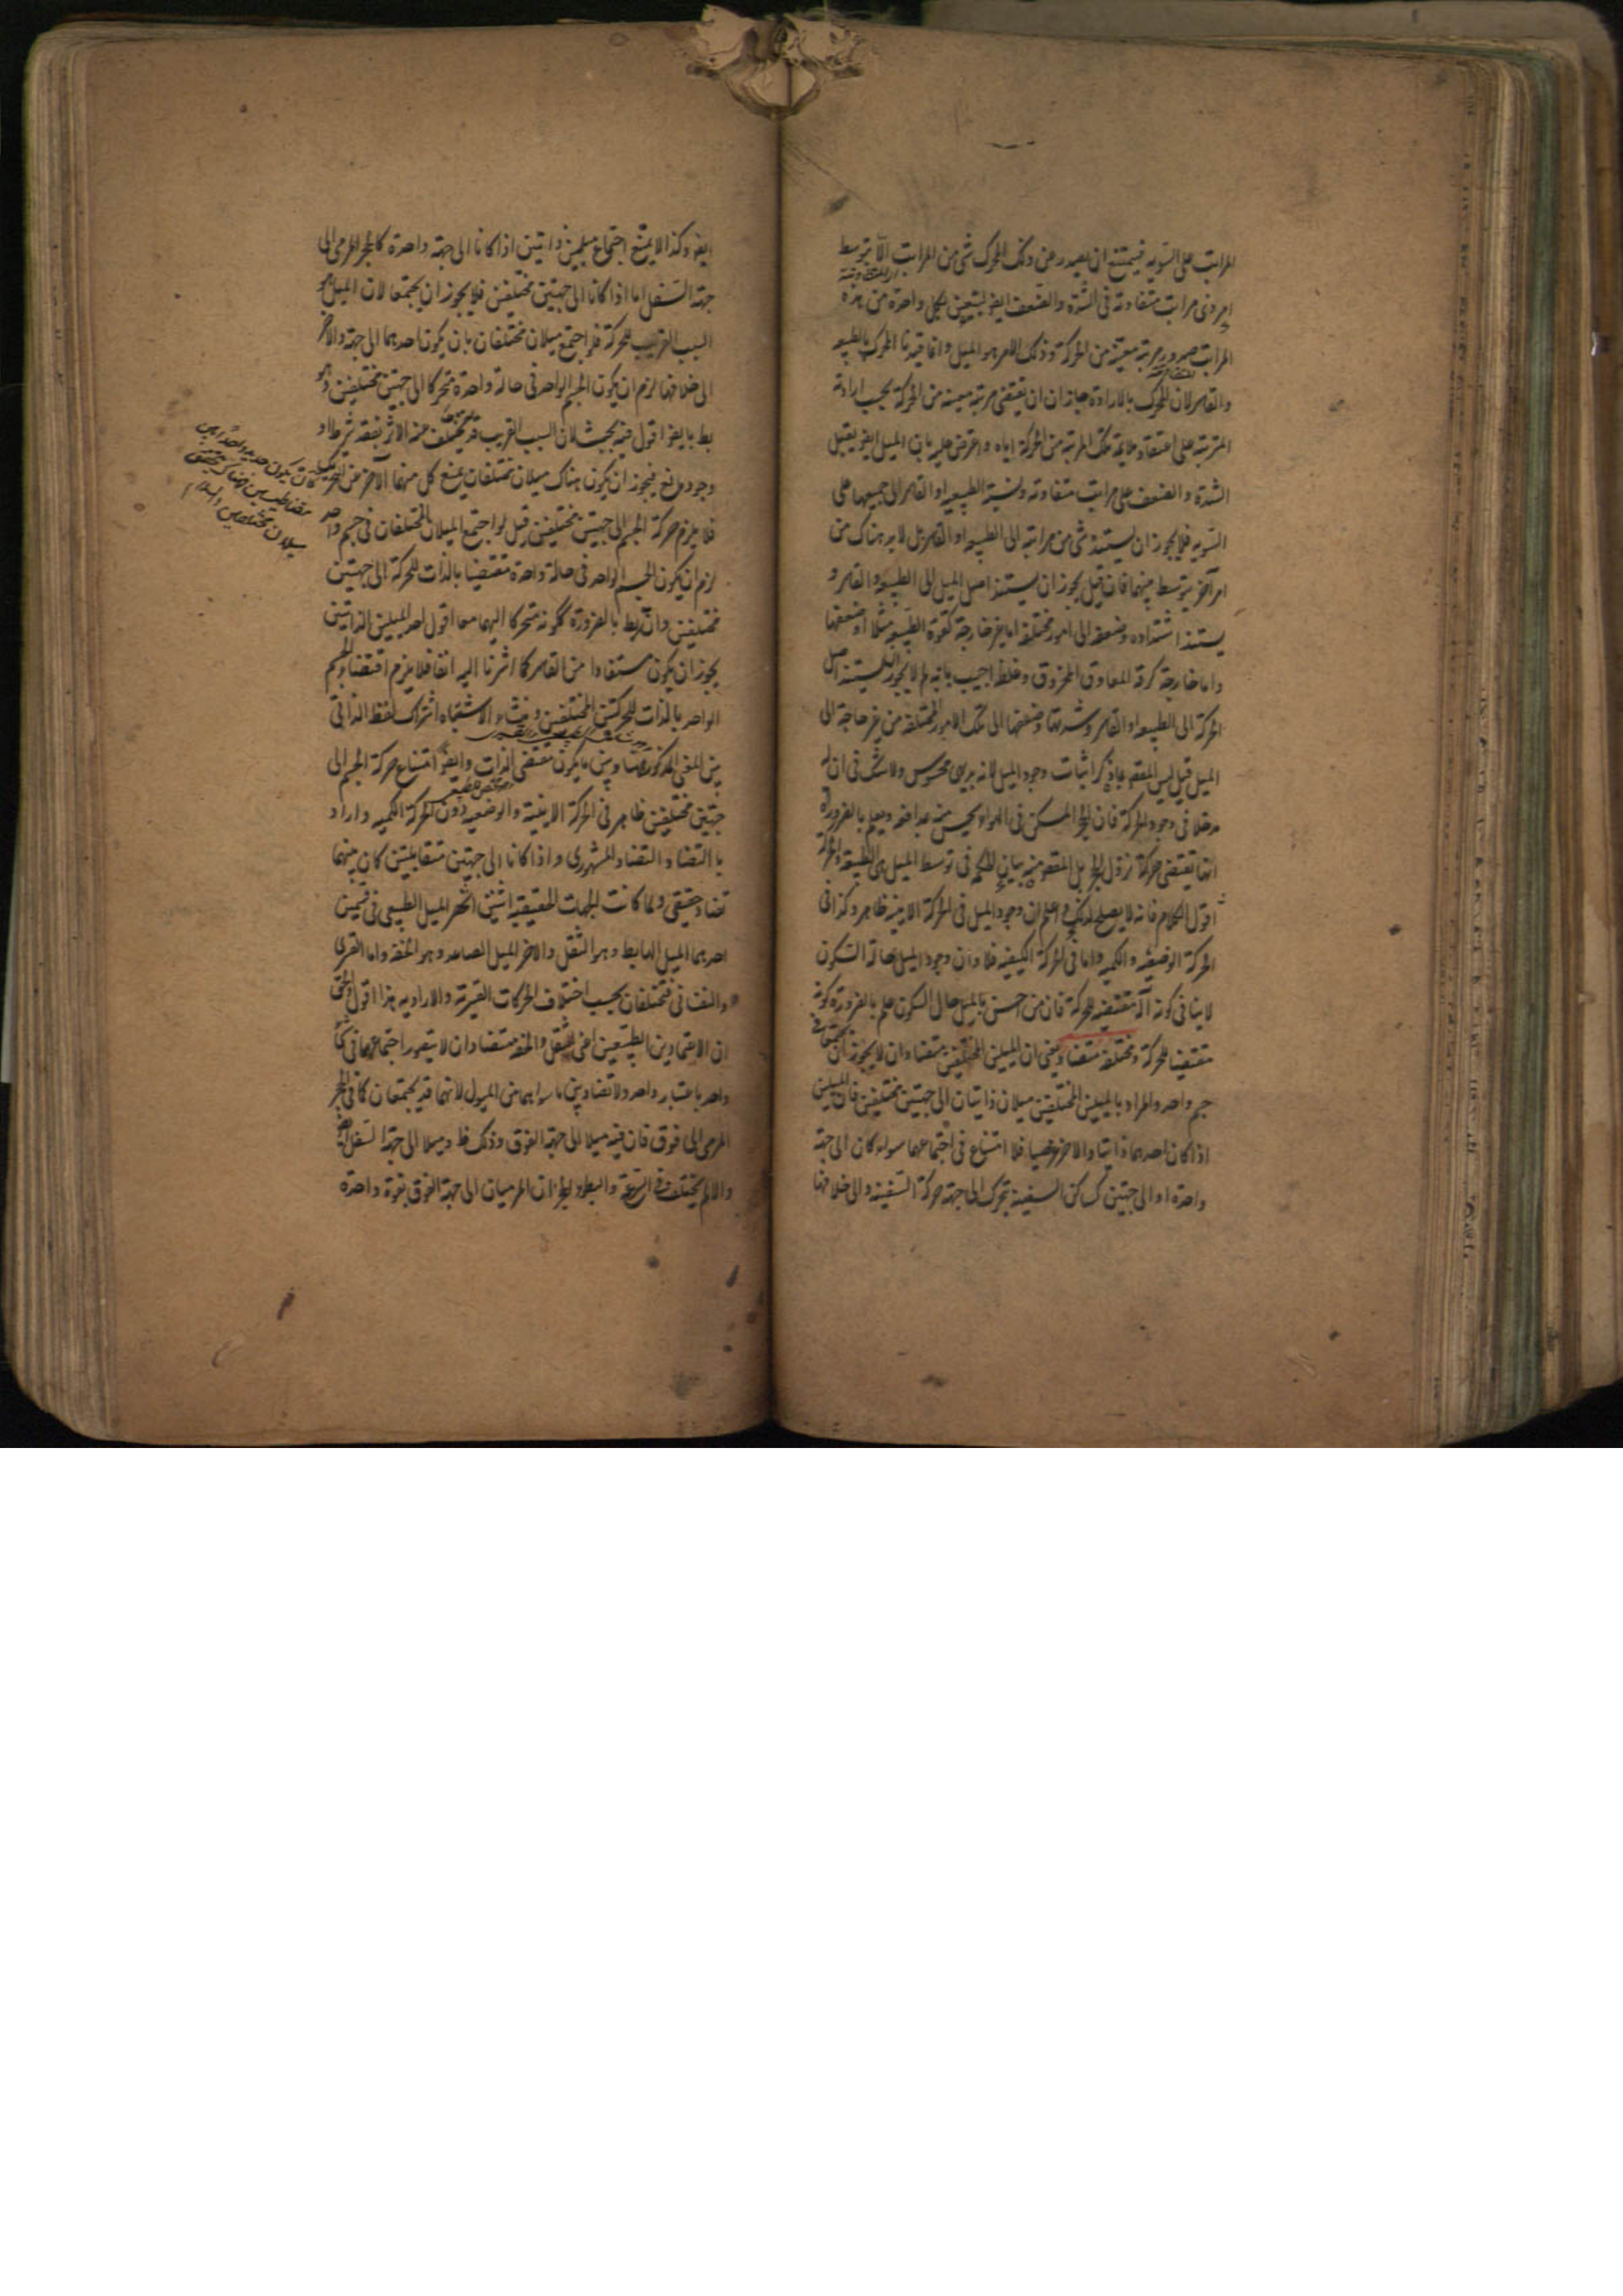 المراتب على السوية فيمتنع ان يصدر عن ذلك المحرك شئ من المراتب الا بتوسط
امر ذى مراتب متفاوتة فى الشدة والضعف ايضا ليتعين بكل واحدة من هذه
المراتب صدور مرتبة معينة من الحركة وذلك الامر هو الميل وانما قيدنا المحرك بالطبيعة
والقاسر لان المحرك بالارادة جاز ان يقتضى مرتبة معينة من الحركة بحسب ارادته
المترتبة على اعتقاد ملايمة تلك المرتبة من الحركة اياه واعترض عليه بان الميل ايضا يقبل
الشدة والضعف على مراتب متفاوتة ونسبة الطبيعة او القاسر الى جميعها على
السوية فلا يجوز ان يستند شئ من مراتبه الى الطبيعة او القاسر بل لابد هناك من
امر آخر يتوسط بينهما فان قيل يجوز ان يستند اصل الميل الى الطبيعة والقاسر و
يستند اشتداده وضعفه الى امور مختلفة اما غير خارجة كقوة الطبيعة مثلا او ضعفها
واما خارجة كرقة المعاوق المخروق وغلظه اجيب بانه لم لا يجوز ان يستند اصل
الحركة الى الطبيعة او القاسر وشدتها وضعفها الى تلك الامور المختلفة من غير حاجة الى
الميل قيل ليس المقصود بما ذكر اثبات وجود الميل لانه بديهى محسوس ولا شك فى ان له
مدخلا فى وجود الحركة فان الحجر المسكن فى الهواء يحس منه مدافعة ويعلم بالضرورة
انها يقتضى حركة نزول الحجر بل المقصود منه بيان اللمية فى توسط الميل بين الطبيعة والحركة
اقول الكلام فانه لا يصلح لذلك واعلم ان وجود الميل فى الحركة الاينية ظاهر وكذا فى
الحركة الوضعية والكمية واما فى الحركة الكيفية فلا وان وجود الميل حالة السكون
لا ينافى كونه آلة مقتضية للحركة فان من احس بالميل حال السكون علم بالضرورة كونه
مقتضيا للحركة ومختلفة متضاد يعنى ان الميلين المختلفين متضادان لا يجوز ان يجتمعا فى
جسم واحد والمراد بالميلين المختلفين ميلان ذاتيان الى جهتين مختلفتين فان الميلين
اذا كان احدهما ذاتيا والاخر عرضيا فلا امتناع فى اجتماعهما سواء كان الى جهة
واحدة او الى جهتين كساكن السفينة يتحرك الى جهة حركة السفينة والى خلافها
ايضا وكذا لا يمتنع اجتماع ميلين ذاتيين اذا كانا الى جهة واحدة كالحجر المرمى الى
جهة السفل اما اذا كانا الى جهتين مختلفتين فلا يجوز ان يجتمعا لان الميل هو
السبب القريب للحركة فلو اجتمع ميلان مختلفان بان يكون احدهما الى جهة والآخر
الى خلافها لزم ان يكون الجسم الواحد فى حالة واحدة متحركا الى جهتين مختلفتين وهو
بط بايضا اقول فيه بحث لان السبب القريب قد يتخلف عنه الاثر بفقد شرط او
وجود مانع فيجوز ان يكون هناك ميلان مختلفان يمنع كل منهما الآخر عن التحريك
فلا يلزم حركة الجسم الى جهتين مختلفتين قيل لو اجتمع الميلان المختلفان فى جسم واحد
لزم ان يكون الجسم الواحد فى حالة واحدة مقتضيا بالذات للحركة الى جهتين
مختلفتين وانه بط بالضرورة ككونه متحركا اليهما معا اقول احد الميلين الذاتيين
يجوز ان يكون مستفادا من القاسر كما اشرنا اليه آنفا فلا يلزم اقتضاء الجسم
الواحد بالذات للحركتين المختلفتين ومنشاء الاشتباه اشتراك لفظ الذاتى
بين المعنى المذكور هنا وبين ما يكون مقتضى الذات وايضا امتناع حركة الجسم الى
جهتين مختلفتين ظاهر فى الحركة الاينية والوضعية دون الحركة الكمية واراد
بالتضاد التضاد المشهورى واذا كانا الى جهتين متقابلتين كان بينهما
تضاد حقيقى ولما كانت الجهات الحقيقية اثنتين انحصر الميل الطبيعى فى قسمين
احدهما الميل الهابط وهو الثقل والآخر الميل الصاعد وهو الخفة واما القسرى
والنفسانى فيختلفان بحسب اختلاف الحركات القسرية والارادية هذا اقول والحق
ان الاعتمادين الطبيعيين اعنى الثقل والخفة متضادان لا يتصور اجتماعهما فى محل
واحد باعتبار واحد ولا تضاد بين ما سواهما من الميول لانهما قد يجتمعان كما فى الحجر
المرمى الى فوق فان فيه ميلا الى جهة الفوق وذلك ظ وميلا الى جهة السفل ايضا
والا لم يختلف فى السرعة والبطؤ الحجران المرميان الى جهة الفوق بقوة واحدة